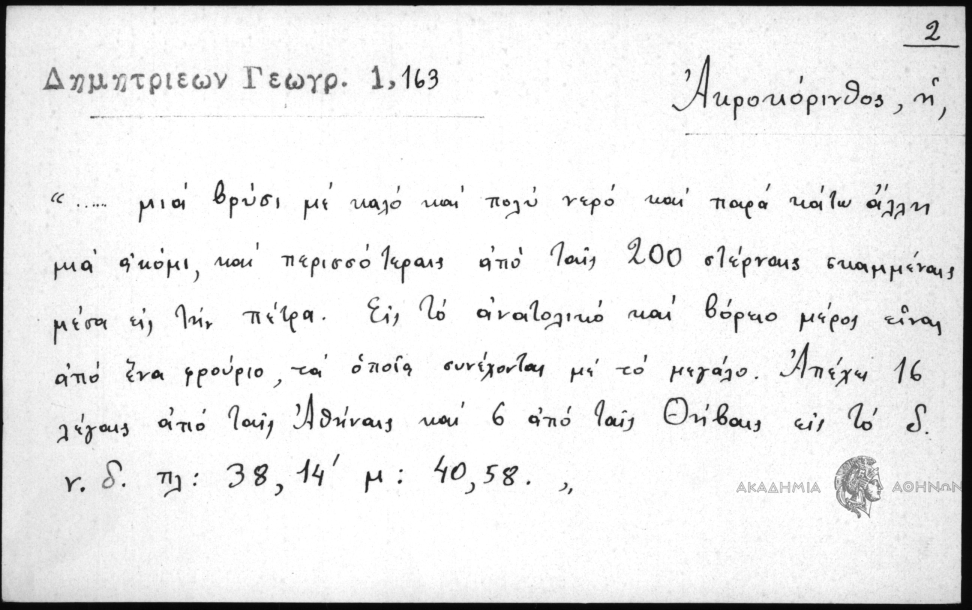 2
Δημητριεων Γεωγρ. 1,163
Ἀκροκόρινθος, ἡ,
“ ..... μιά βρύσι μέ καλό καί πολύ νερό καί παρά κάτω ἄλλη
μιά ἀκόμι, καί περισσότεραις ἀπό ταῖς 200 στέρναις σκαμμέναις
μέσα εἰς τήν πέτρα. Εἰς τό ἀνατολικό καί βόρειο μέρος εἶναι
ἀπό ἕνα φρούριο, τά ὁποῖα συνέχονται μέ τό μεγάλο. Ἀπέχει 16
λέγαις ἀπό ταῖς Ἀθήναις καί 6 ἀπό ταῖς Θήβαις εἰς τό δ.
ν. δ. πλ: 38, 14′ μ: 40,58. „
ΑΚΑΔΗΜΙΑ ΑΘΗΝΩΝ